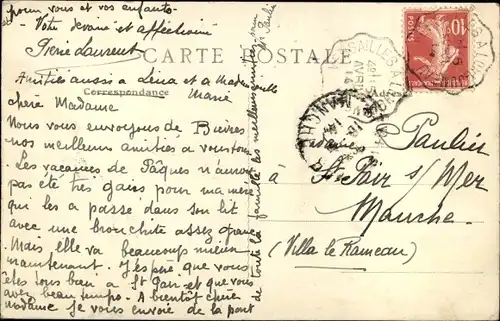 pour vous et vos enfants.
Votre dévoué et affectionné
Pierre Laurent
CARTE POSTALE
Amitiés aussi à Léna et à Mademoiselle
Marie
Correspondance
chère Madame
Nous vous envoyons de Bièvres
nos meilleurs amitiés à vous tous
Les vacances de Pâques n'auront
pas été très gaies pour ma mère
qui les a passé dans son lit
avec une bronchite assez grave
Mais elle va beaucoup mieux
maintenant. J'espère que vous
êtes tous bien à St Pair et que vous
avez beau temps. A bientôt chère
madame je vous envoie de la part
de toute la famille les meilleures amitiés
Paulier
St Pair s/ Mer
Manche
(Villa le Rameau)
10